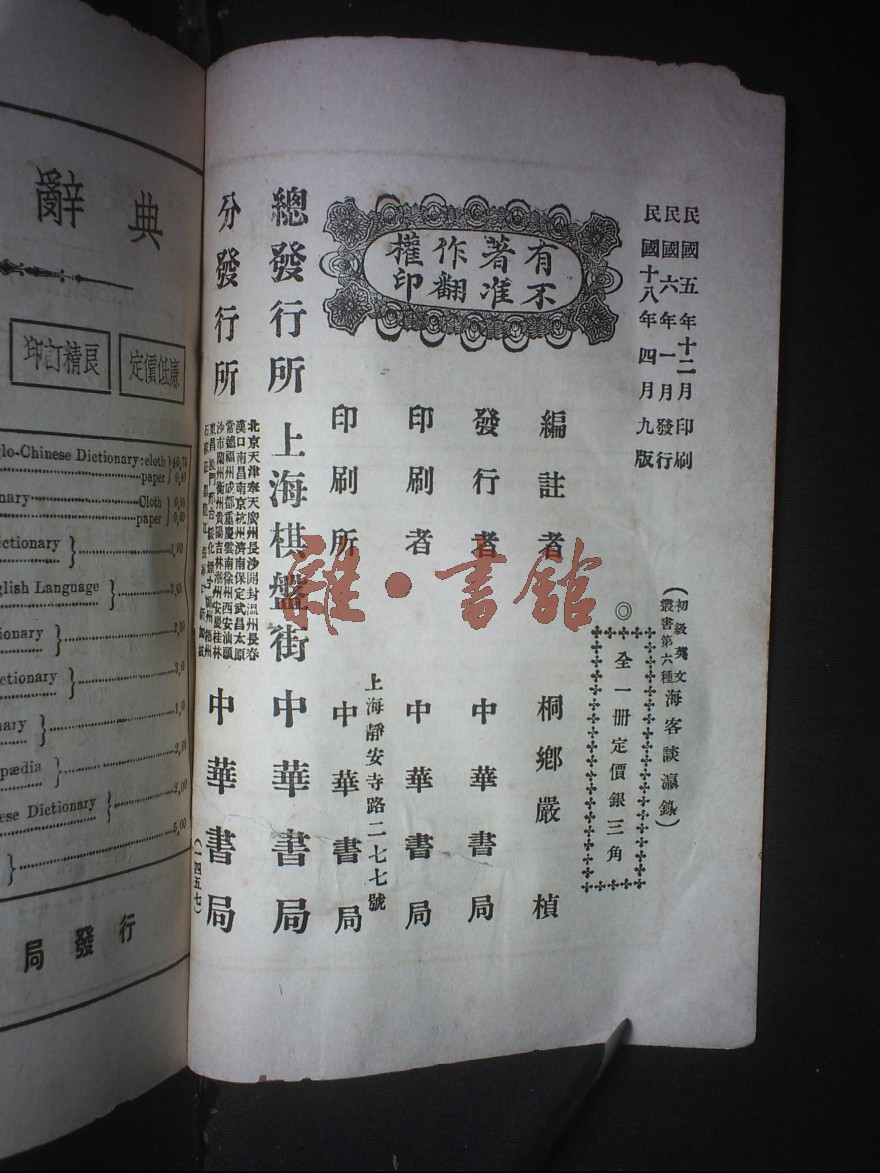 民國五年十二月印刷
民國六年一月發行
民國十八年四月九版
有不
著准
作翻
權印
(初級英文
叢書第六種海客談瀛錄)
◎全一册定價銀三角
編註者 桐鄉嚴楨
發行者 中華書局
印刷者 中華書局
上海靜安寺路二七七號
印刷所 中華書局
總發行所 上海棋盤街 中華書局
分發行所
北京天津奉天廣州長沙開封溫州長春
漢口南昌南京杭州濟南保定武昌太原
常德福州成都重慶雲南徐州西安汕頭
沙市蘭州衢州貴陽吉林潮州安慶桂林
中華書局
(一四五七)
雜·書館
辭典
印訂精良
定價低廉
glo-Chinese Dictionary: cloth
paper 0.40
nary Cloth 0.90
paper 0.60
ictionary 1.00
glish Language
ionary
ctionary
nary
pædia
ese Dictionary 3.00
5.00
局發行